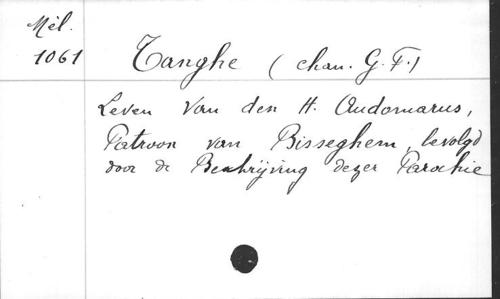 Mél.
1061
Tanghe (chan. G. F.)
Leven van den H. Audomarus,
Patroon van Bisseghem, bevolgd
door de Beschrijving dezer Parochie